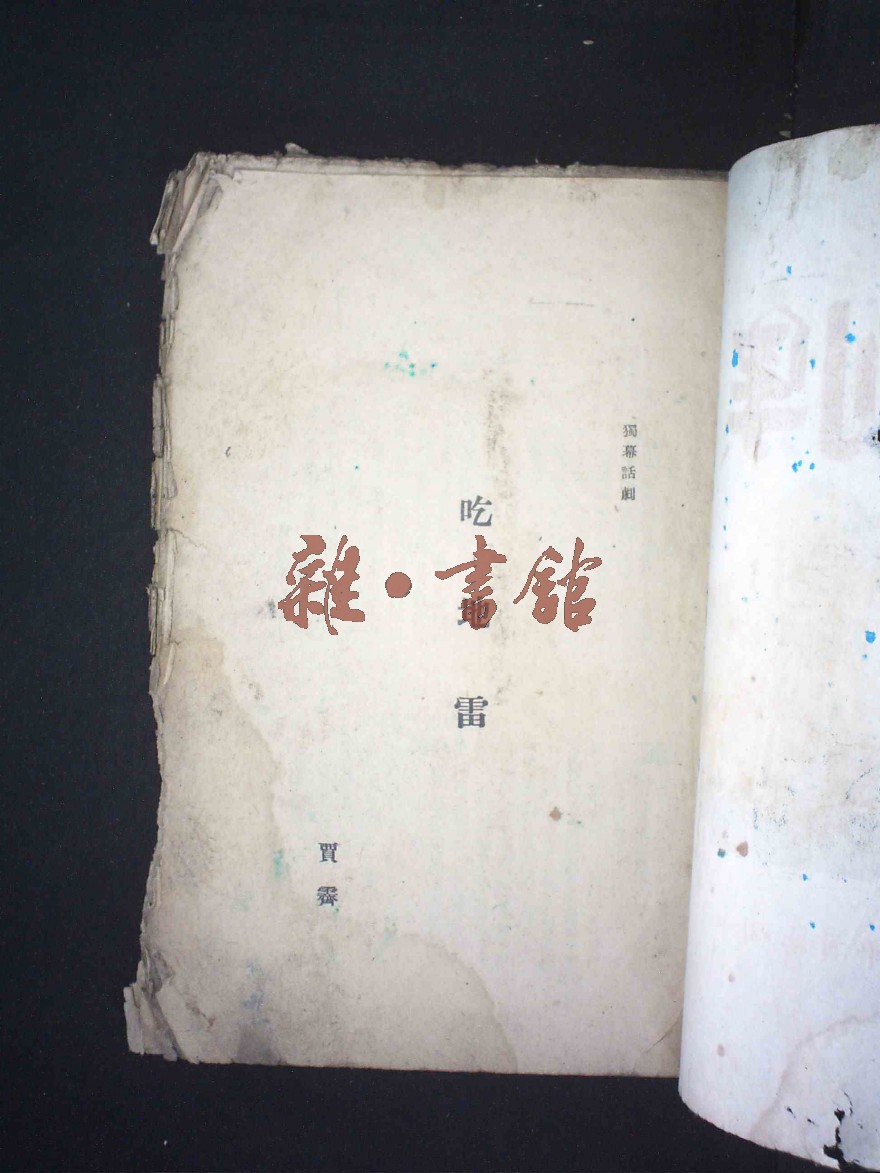 獨幕話劇
吃地雷
賈霽
雜·書館